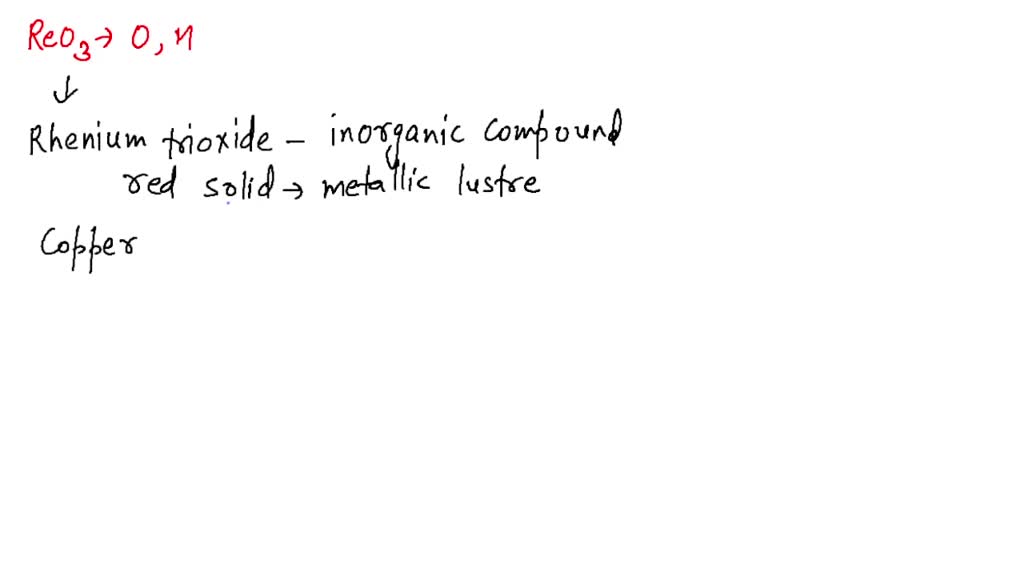 ReO₃→ O, N
↓
Rhenium trioxide – inorganic compound
red solid → metallic lustre
Copper